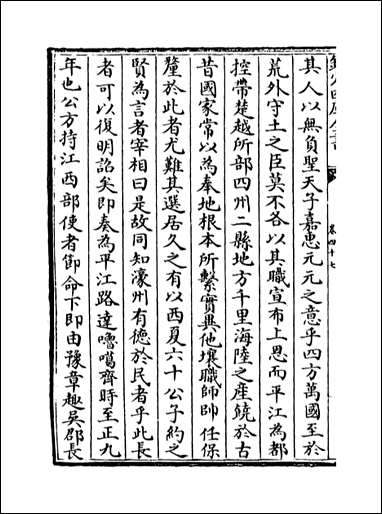 欽定四庫全書
卷四十七
其人以無負聖天子嘉惠元元之意乎四方萬國至於
荒外守土之臣莫不各以其職宣布上恩而平江為都
控帶楚越所部四州二縣地方千里海陸之産饒於古
昔國家常以為奉地根本所繫實與他壤職師帥任保
釐於此者尤難其選居久之有以西夏六十公子約之
賢為言者宰相曰是故同知濠州有德於民者乎此長
者可以復明詔矣即奏為平江路達嚕噶齊時至正九
年也公方持江西部使者節命下即由豫章趣吳郡長